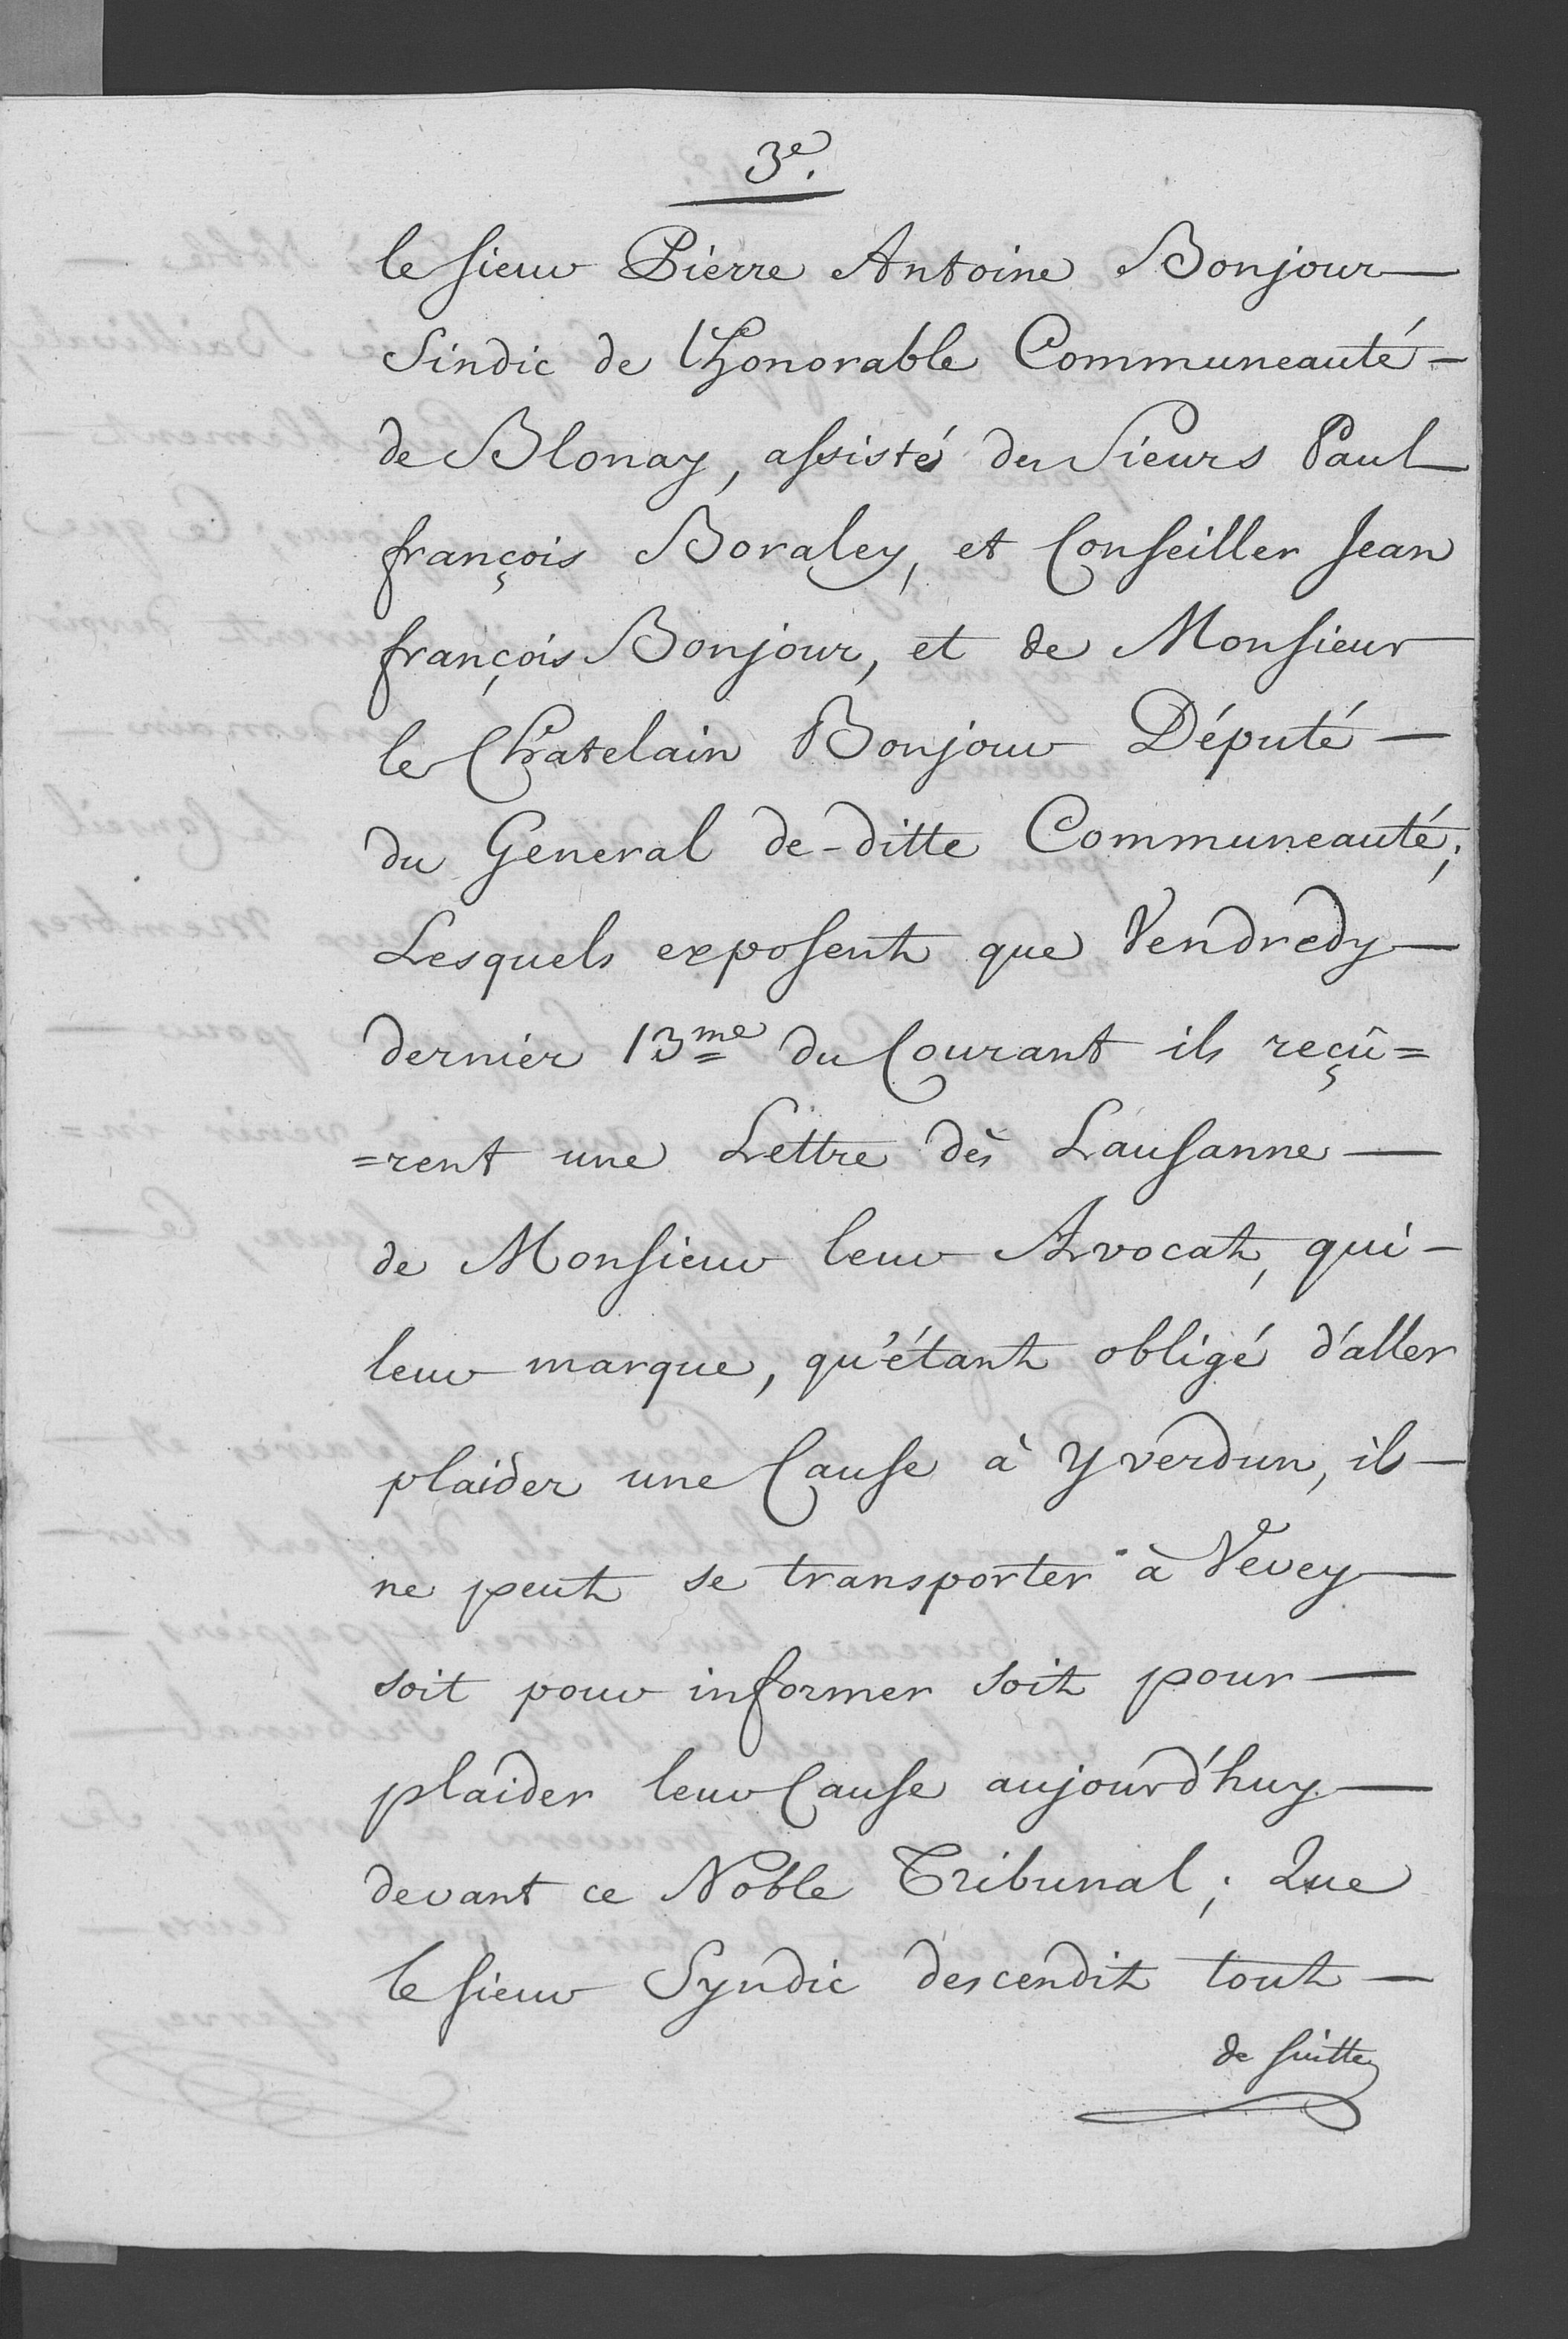 3e.
le sieur Pierre Antoine Bonjour —
Sindic de l'honorable Communeauté —
de Blonay, assisté des Sieurs Paul
françois Boraley, et Conseiller Jean
françois Bonjour, et de Monsieur
le Chatelain Bonjour Député —
du General de-ditte Communeauté;
Lesquels exposent que Vendredy —
dernier 13me du Courant ils reçû=
=rent une Lettre dès Lausanne —
de Monsieur leur Avocat, qui —
leur marque, qu'étant obligé d'aller
plaider une Cause à Yverdun, il —
ne peut se transporter à Vevey —
soit pour informer soit pour —
plaider leur Cause aujourd'huy —
devant ce Noble Tribunal; Que
le sieur Syndic descendit tout —
de suitte